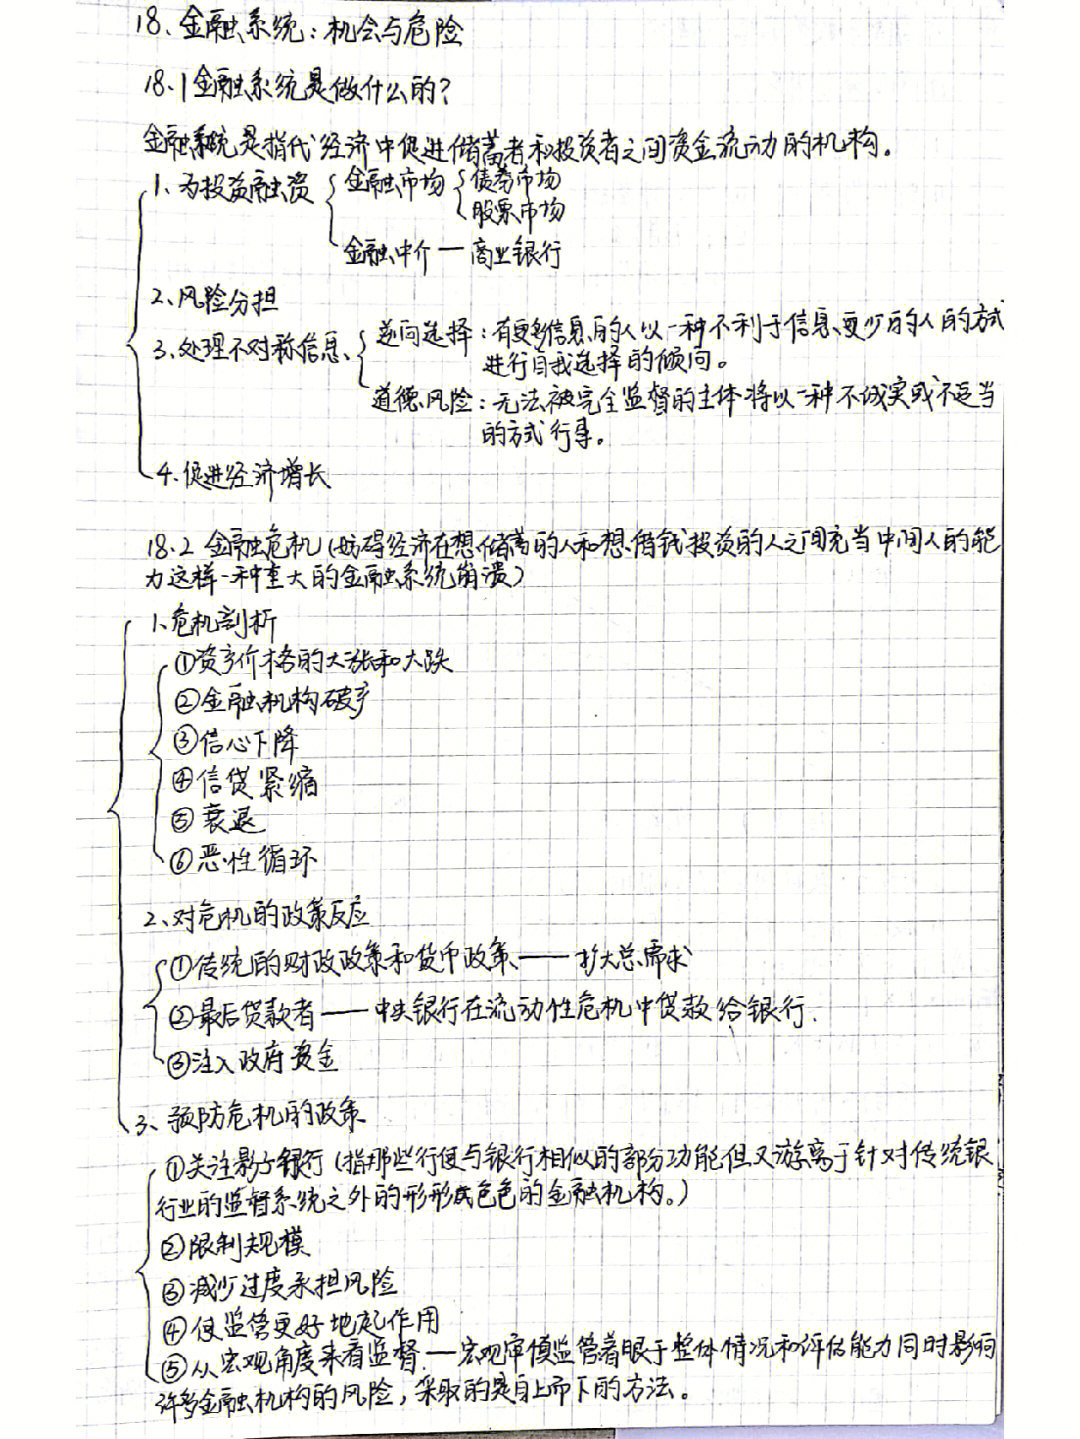 18、金融系统：机会与危险
18.1 金融系统是做什么的？
金融系统是指代经济中促进储蓄者和投资者之间资金流动的机构。
1、为投资融资 金融市场 债券市场
股票市场
金融中介 — 商业银行
2、风险分担
3、处理不对称信息、 逆向选择：有更多信息的人以一种不利于信息更少的人的方式
进行自我选择的倾向。
道德风险：无法被完全监督的主体将以一种不诚实或不适当
的方式行事。
4、促进经济增长
18.2 金融危机（妨碍经济在想储蓄的人和想借钱投资的人之间充当中间人的能
力这样一种重大的金融系统崩溃）
1、危机剖析
①资产价格的大涨和大跌
②金融机构破产
③信心下降
④信贷紧缩
⑤衰退
⑥恶性循环
2、对危机的政策反应
①传统的财政政策和货币政策 —— 扩大总需求
②最后贷款者 —— 中央银行在流动性危机中贷款给银行.
③注入政府资金
3、预防危机的政策
①关注影子银行（指那些行使与银行相似的部分功能但又游离于针对传统银
行业的监督系统之外的形形色色的金融机构。）
②限制规模
③减少过度承担风险
④使监管更好地起作用
⑤从宏观角度来看监督.—宏观审慎监管着眼于整体情况和评估能力同时影响
许多金融机构的风险，采取的是自上而下的方法。